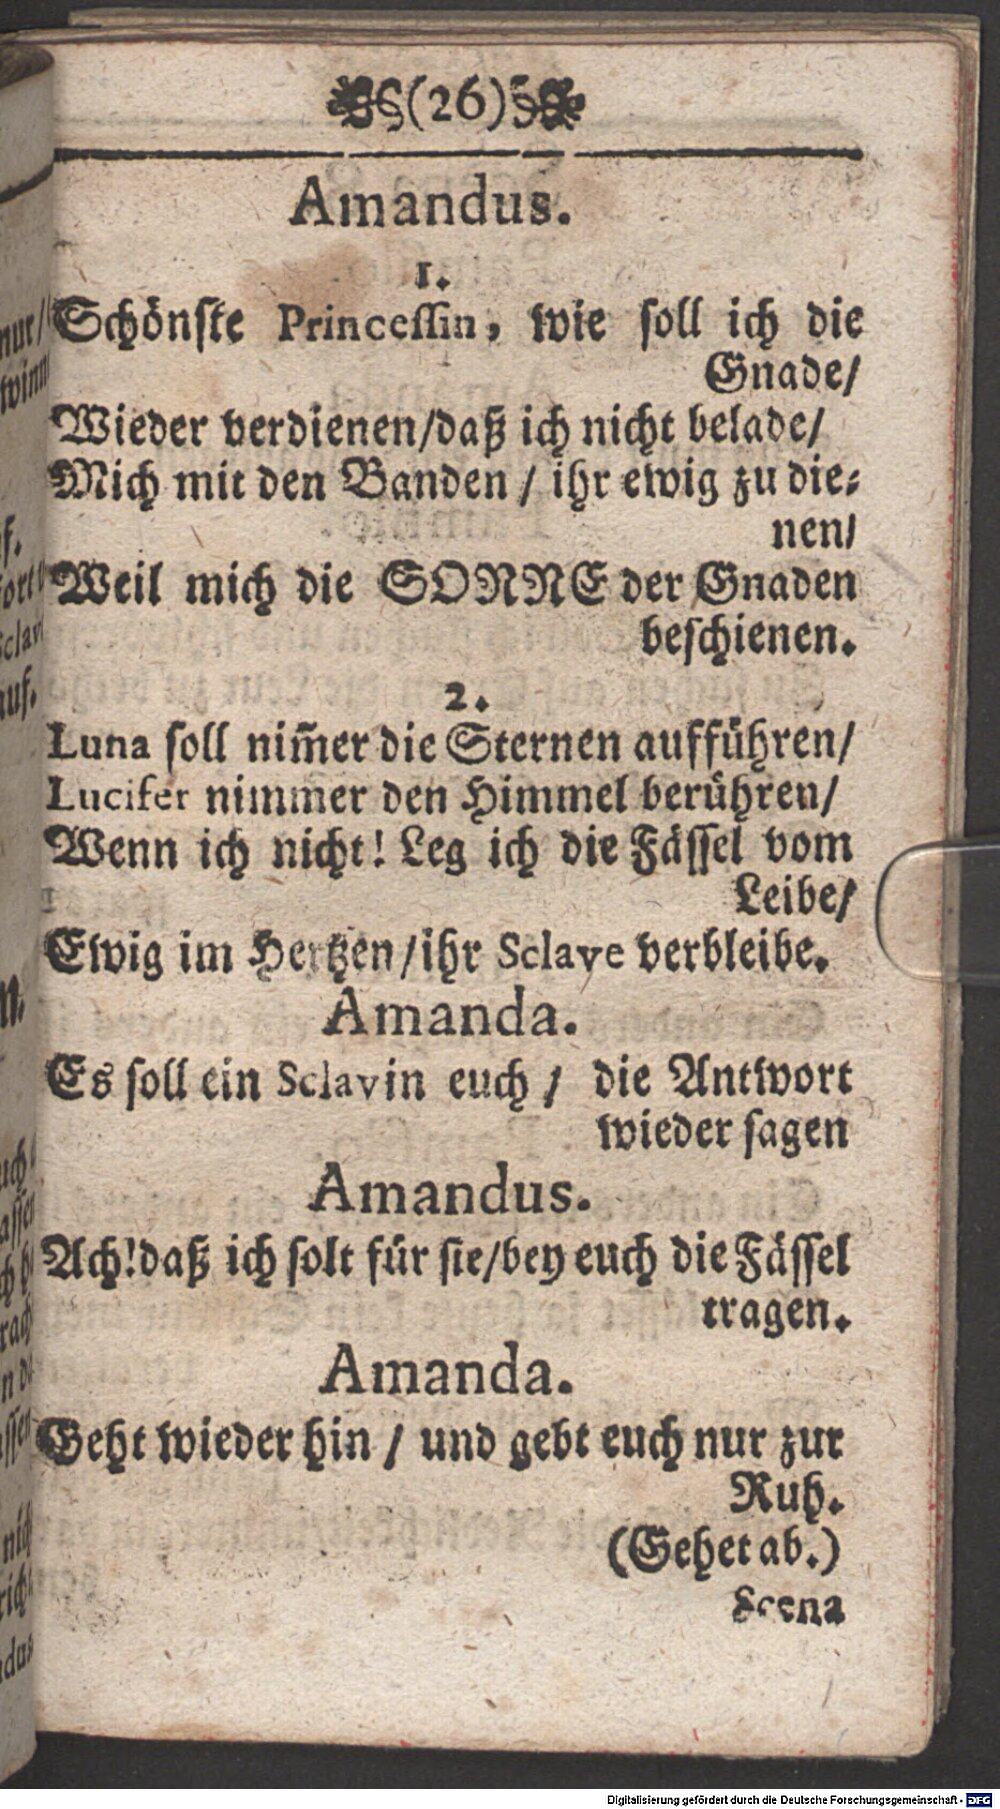 (26)
Amandus.
1.
Schönste Princessin, wie soll ich die
Gnade/
Wieder verdienen/daß ich nicht belade/
Mich mit den Banden / ihr ewig zu die-
nen/
Weil mich die SONNE der Gnaden
beschienen.
2.
Luna soll nim̃er die Sternen aufführen/
Lucifer nimmer den Himmel berühren/
Wenn ich nicht! Leg ich die Fässel vom
Leibe/
Ewig im Hertzen/ihr Sclave verbleibe.
Amanda.
Es soll ein Sclavin euch / die Antwort
wieder sagen
Amandus.
Ach!daß ich solt für sie/bey euch die Fässel
tragen.
Amanda.
Geht wieder hin / und gebt euch nur zur
Ruh.
(Gehet ab.)
Scena
Digitalisierung gefördert durch die Deutsche Forschungsgemeinschaft - DFG